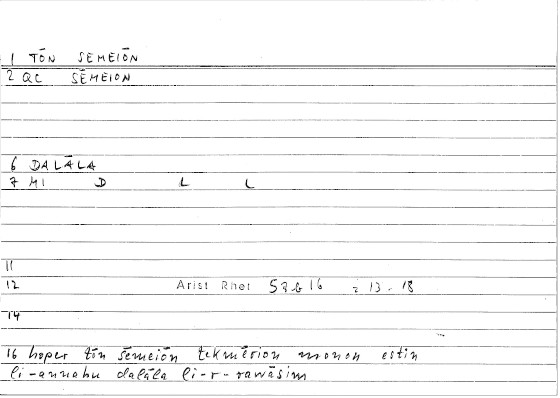 1 TŌN SĒMEIŌN
2 QC SĒMEION
6 DALĀLA
7 MI D L L
11
12 Arist Rhet 59b16 = 13-18
14
16 hoper tōn sēmeiōn tekmērion monon estin
li-annahu dalāla li-r-rawāsim